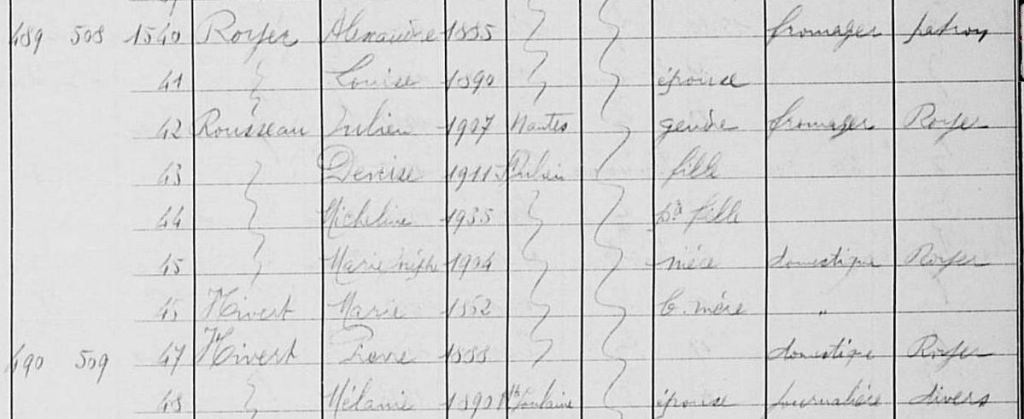 489 508 1540 Royer Alexandre 1885 fromager patron
41 Louise 1890 épouse
42 Rousseau Julien 1907 Nantes gendre fromager Royer
43 Denise 1911 fille
44 Micheline 1935 pte fille
45 Marie 1904 nièce domestique Royer
46 Hivert Marie 1852 b. mère "
490 509 47 Hivert Pierre 1888 domestique Royer
48 Mélanie 1890 épouse journalière divers